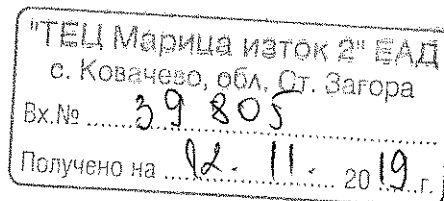 "ТЕЦ Марица изток 2" ЕАД
с. Ковачево, обл. Ст. Загора
Вх.№ ........ 39 805 ........
Получено на ..... 12. 11. ..... 20 19 г.